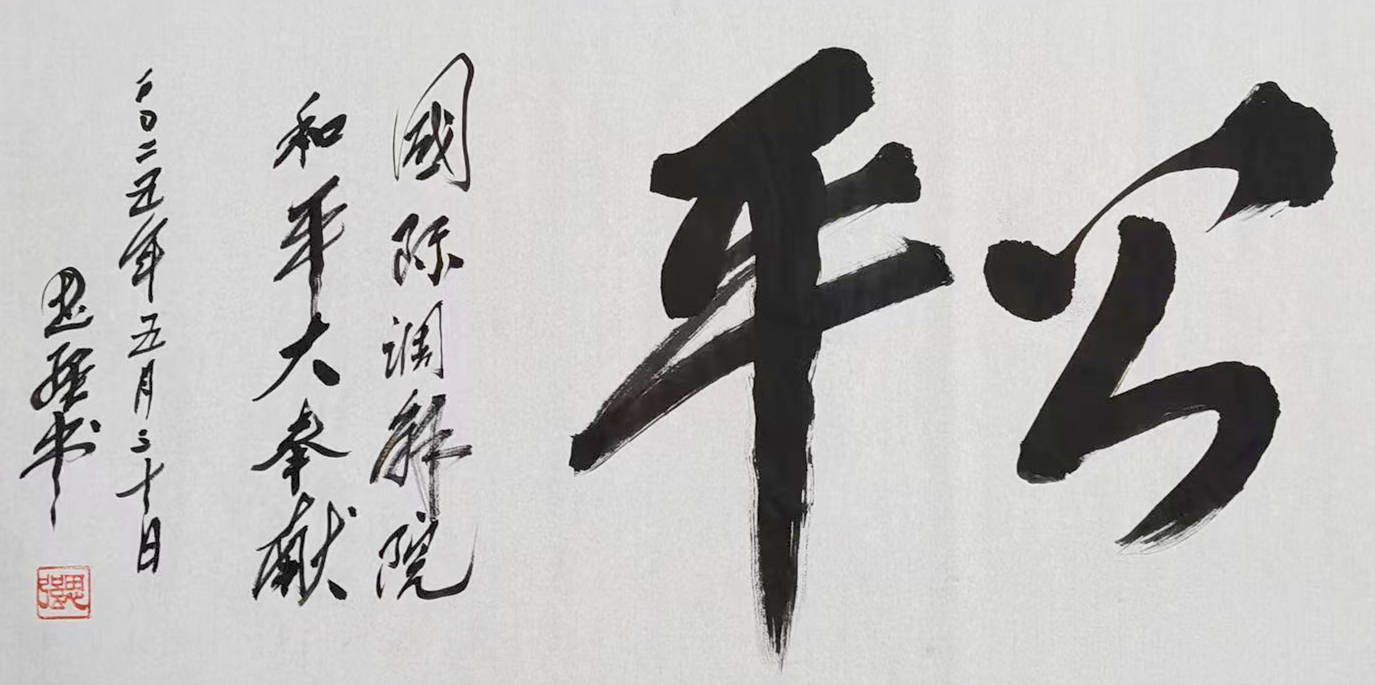 公平
國际调解院
和平大奉献
二〇二五年五月三十日
思强书
思强